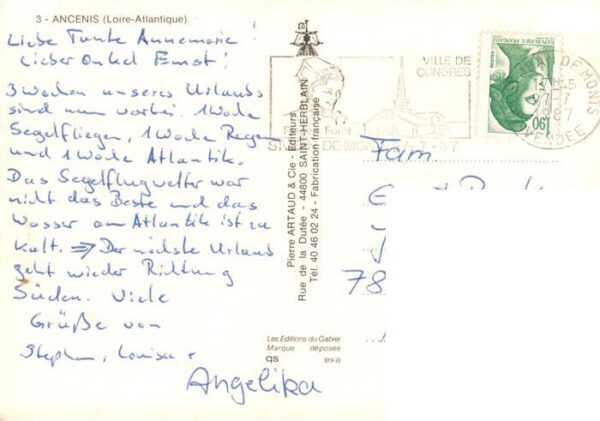 3 - ANCENIS (Loire-Atlantique).
Liebe Tante Annemarie!
Lieber Onkel Ernst!
3 Wochen unseres Urlaubs
sind nun vorbei. 1 Woche
Segelfliegen, 1 Woche Regen
und 1 Woche Atlantik.
Das Segelflugwetter war
nicht das Beste und das
Wasser am Atlantik ist zu
kalt. => Der nächste Urlaub
geht wieder Richtung
Süden. Viele
Grüße von
Stephan, Louisa +
Angelika
Pierre ARTAUD & Cie - Editeurs
Rue de la Dutée - 44800 SAINT-HERBLAIN
Tél. 40 46 02 24 - Fabrication française
Les Editions du Gabier
Marque déposée
qs exa
VILLE DE
CONGRES
Forêt
DE MONTS
7-7-87
VENDEE
Fam.
78